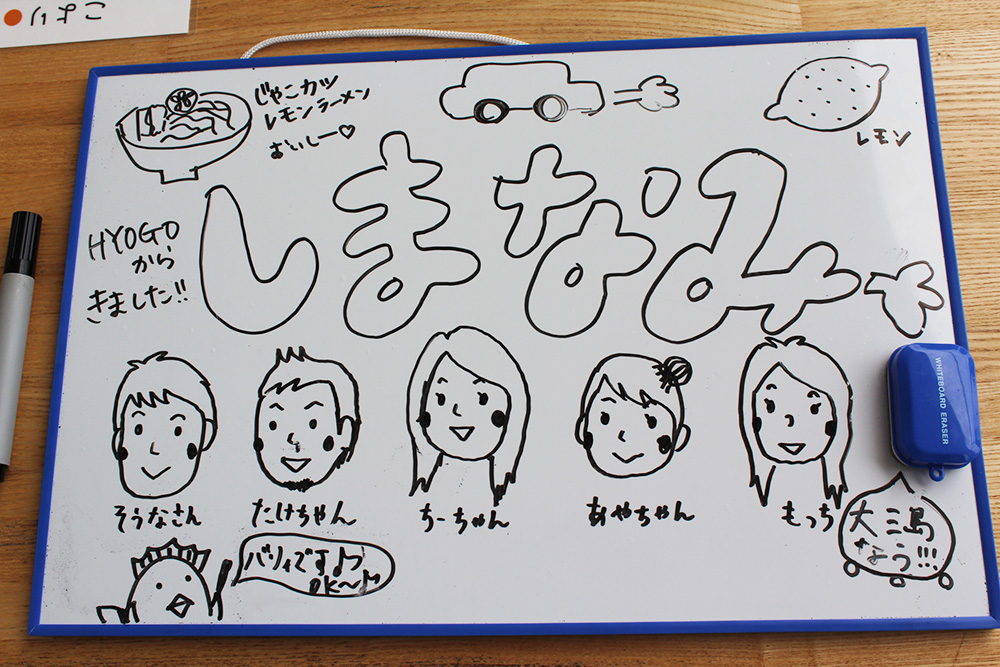 こより
じゃこカツ
レモンラーメン
おいしー♡
レモン
しまなみ
HYOGO
から
きました!!
WHITEBOARD ERASER
そうなさん
たけちゃん
ちーちゃん
あやちゃん
もっち
大三島
なう!!!
バリィです♪
OK〜♪